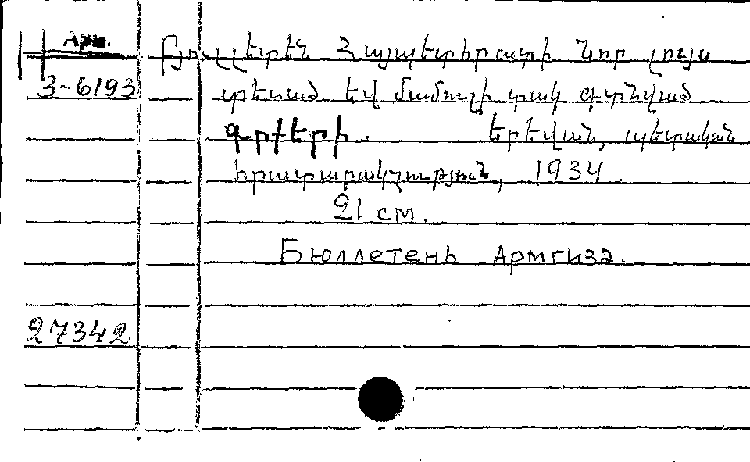 Арм.
3-6193
Բյուլլետեն Հայպետհրատի նոր լույս
տեսած եվ մամուլի տակ գտնված
գրքերի. Երեվան, պետական
հրատարակչություն, 1934
21 см.
Бюллетень Армгиза.
27342